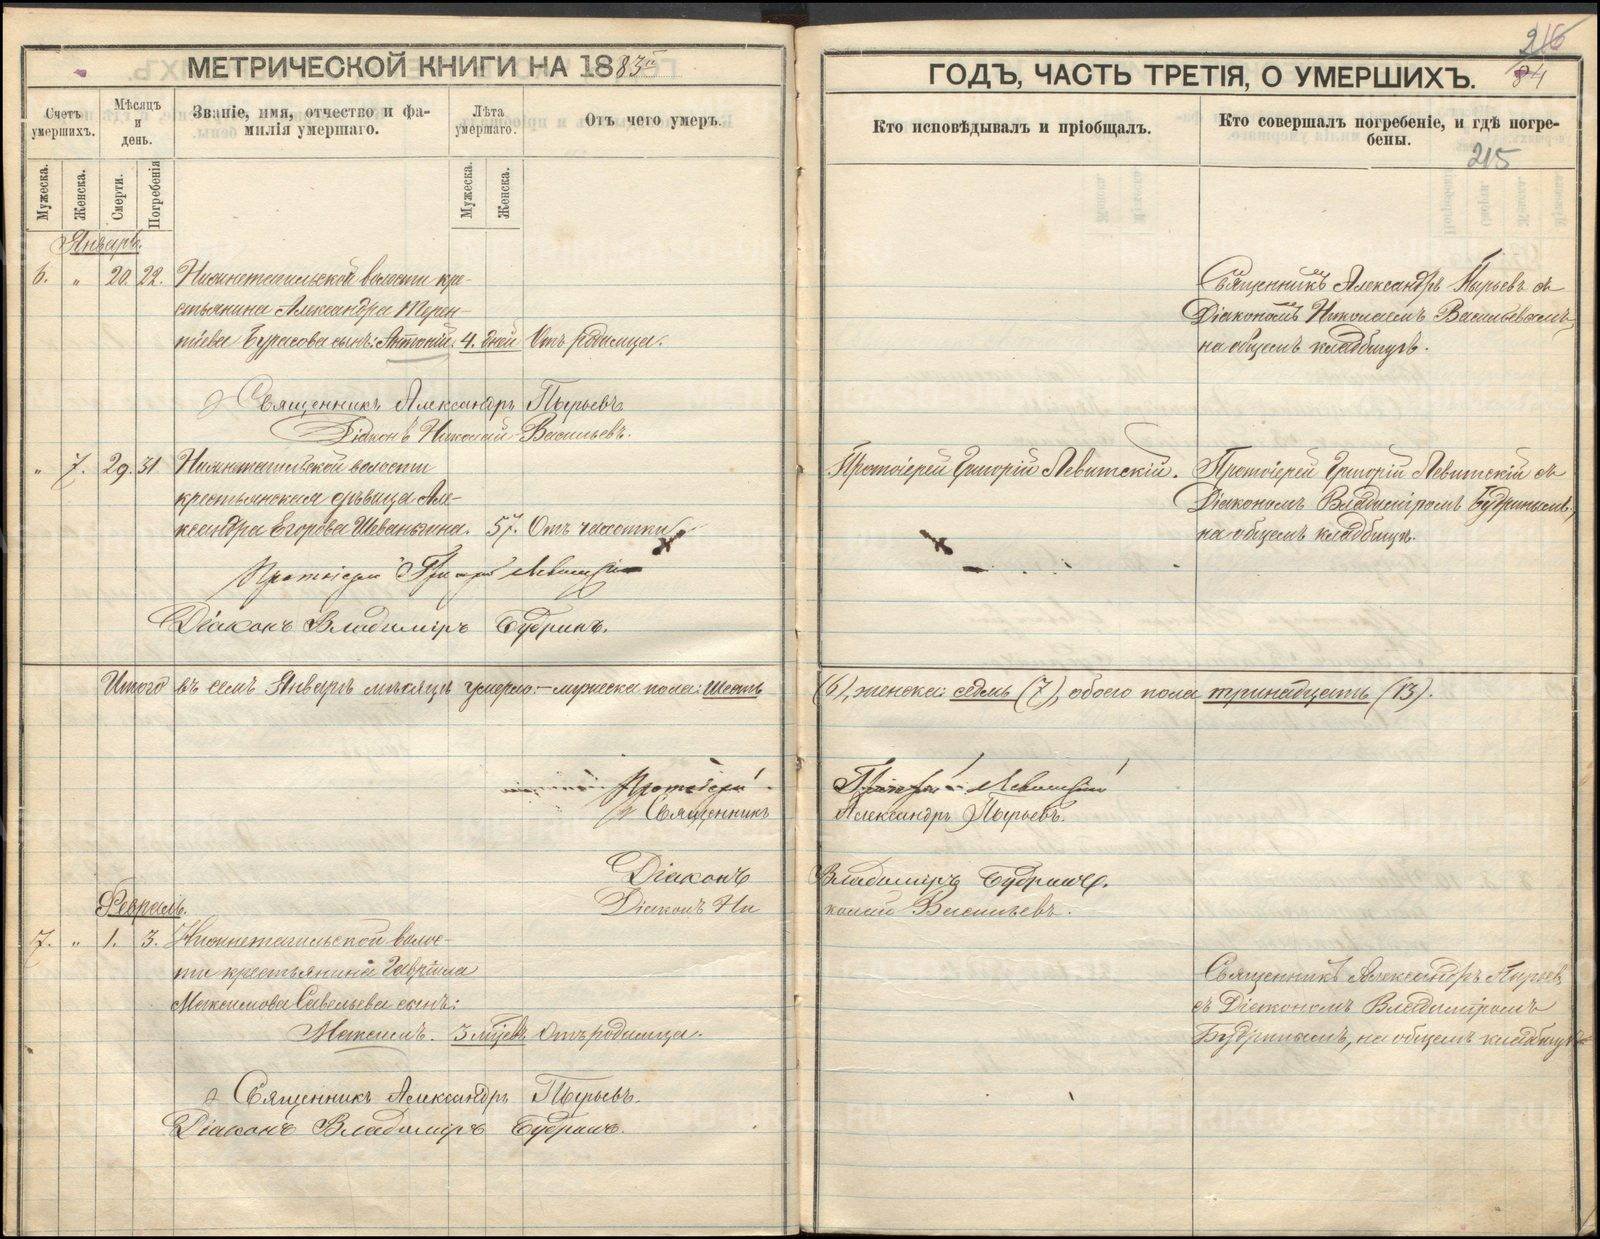 МЕТРИЧЕСКОЙ КНИГИ НА 1883й
Счетъ умершихъ.
Мѣсяцъ и день.
Званіе, имя, отчество и фа-
милія умершаго.
Лѣта умершаго.
Отъ чего умеръ.
Мужеска.
Женска.
Смерти.
Погребенія
Мужеска.
Женска.
Январь.
6. " 20. 22. Нижнетагильской волости кре-
стьянина Александра Терен-
тіева Бурасова сынъ: Антоній. 4. дней Отъ родимца.
Священникъ Александръ Пырьевъ
Діаконъ Николай Васильевъ.
" 7. 29. 31 Нижнетагильской волости
крестьянская дѣвица Але-
ксандра Егорова Шеваньгина. 57. Отъ чахотки
Протоіерей Григорій Левитскій
Діаконъ Владиміръ Бубринъ.
Итого въ семъ Январѣ мѣсяцѣ умерло:– мужеска пола: шесть
Протоіерей
Священникъ
Діаконъ
Діаконъ Ни
Февраль.
7. " 1. 3. Нижнетагильской волос-
ти крестьянина Гавріила
Максимова Савельева сынъ:
Максимъ. 3 мѣсѣ. Отъ родимца.
Священникъ Александръ Пырьевъ.
Діаконъ Владиміръ Бубринъ.
216
84
ГОДЪ, ЧАСТЬ ТРЕТІЯ, О УМЕРШИХЪ.
Кто исповѣдывалъ и пріобщалъ.
Кто совершалъ погребеніе, и гдѣ погре-
бены.
215
Священникъ Александръ Пырьевъ съ
Діакономъ Николаемъ Васильевымъ,
на общемъ кладбищѣ.
Протоіерей Григорій Левитскій.
Протоіерей Григорій Левитскій съ
Діакономъ Владиміромъ Бубринымъ,
на общемъ кладбищѣ.
(6), женска: седмь (7), обоего пола тринадцать (13).
Григорій Левитскій
Александръ Пырьевъ.
Владиміръ Бубринъ.
колай Васильевъ.
Священникъ Александръ Пырьев
съ Діакономъ Владиміромъ
Бубринымъ, на общемъ кладбищѣ